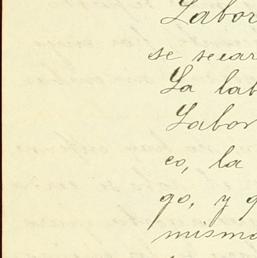 Labor
se secar
La lab
Labor
co, la
go, y q
mismo